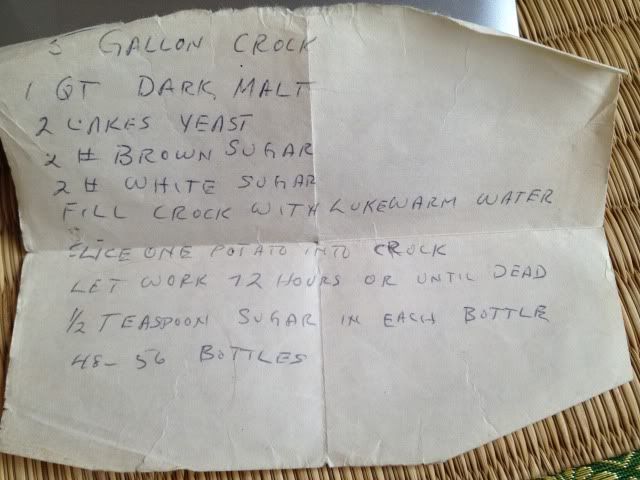 5 GALLON CROCK
1 QT DARK MALT
2 CAKES YEAST
2 # BROWN SUGAR
2 # WHITE SUGAR
FILL CROCK WITH LUKEWARM WATER
SLICE ONE POTATO INTO CROCK
LET WORK 72 HOURS OR UNTIL DEAD
1/2 TEASPOON SUGAR IN EACH BOTTLE
48-56 BOTTLES